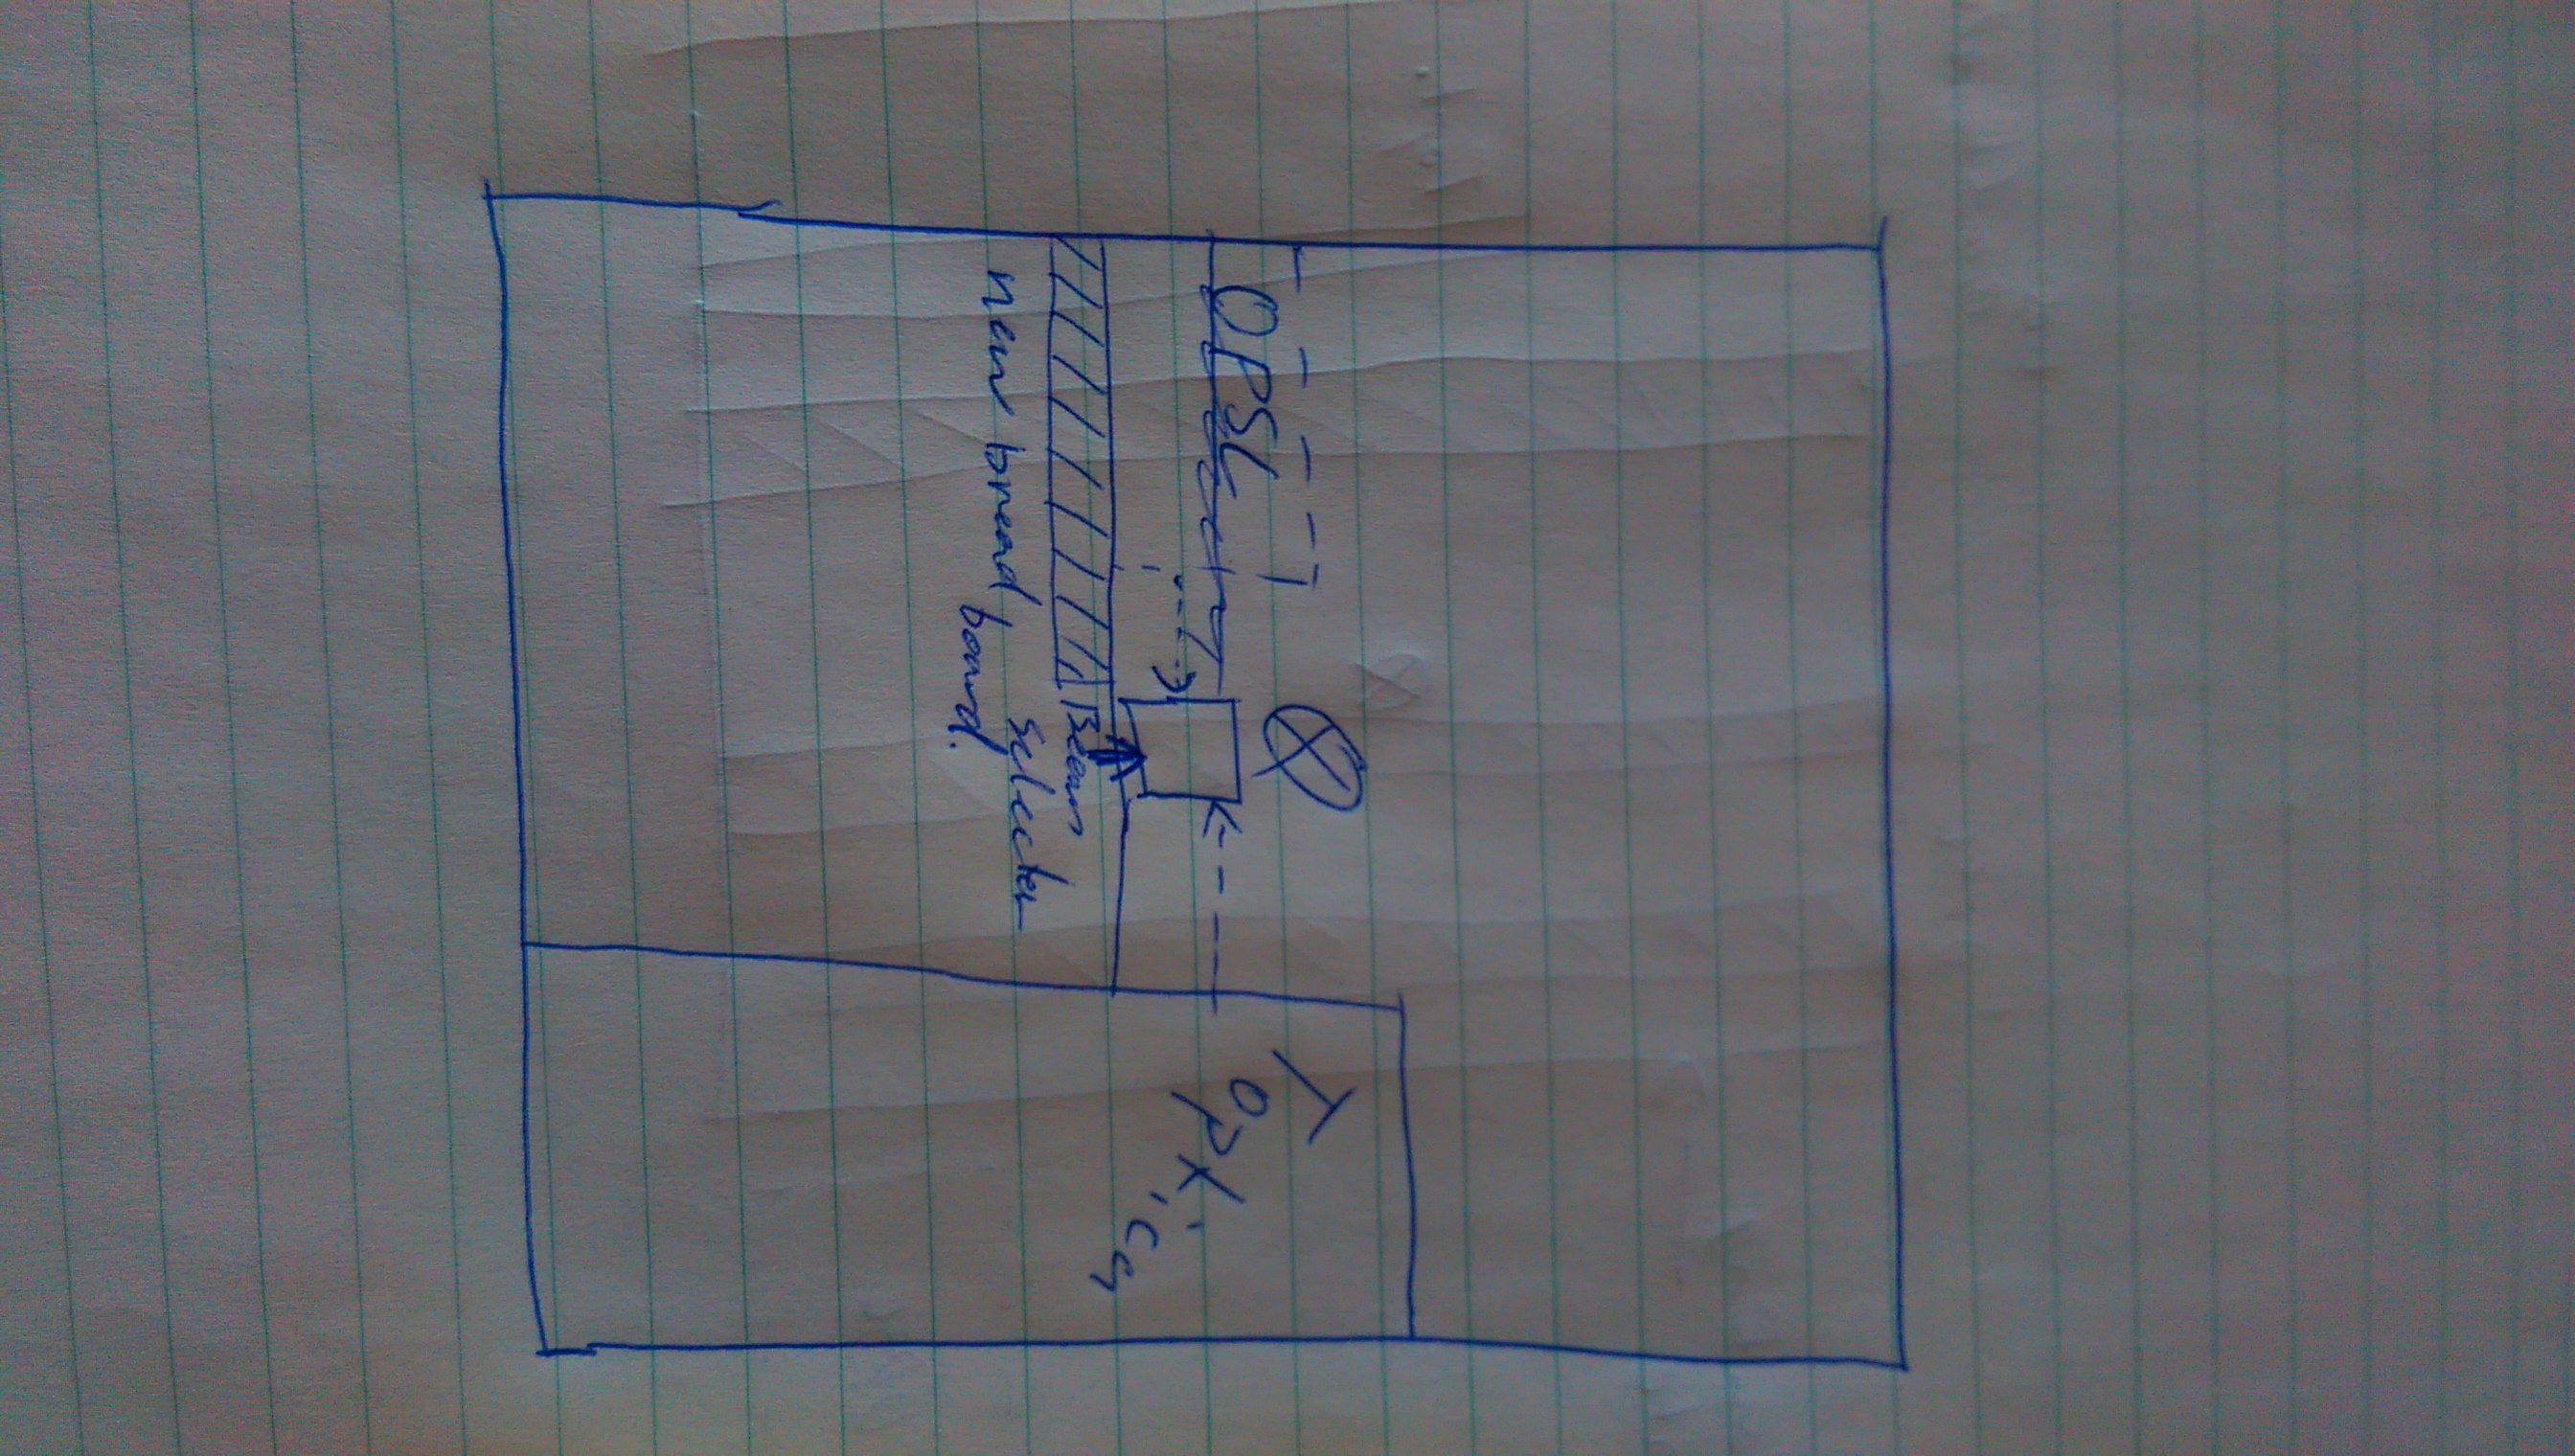 OPSL
Toptica
Beam
selector
new bread
board.